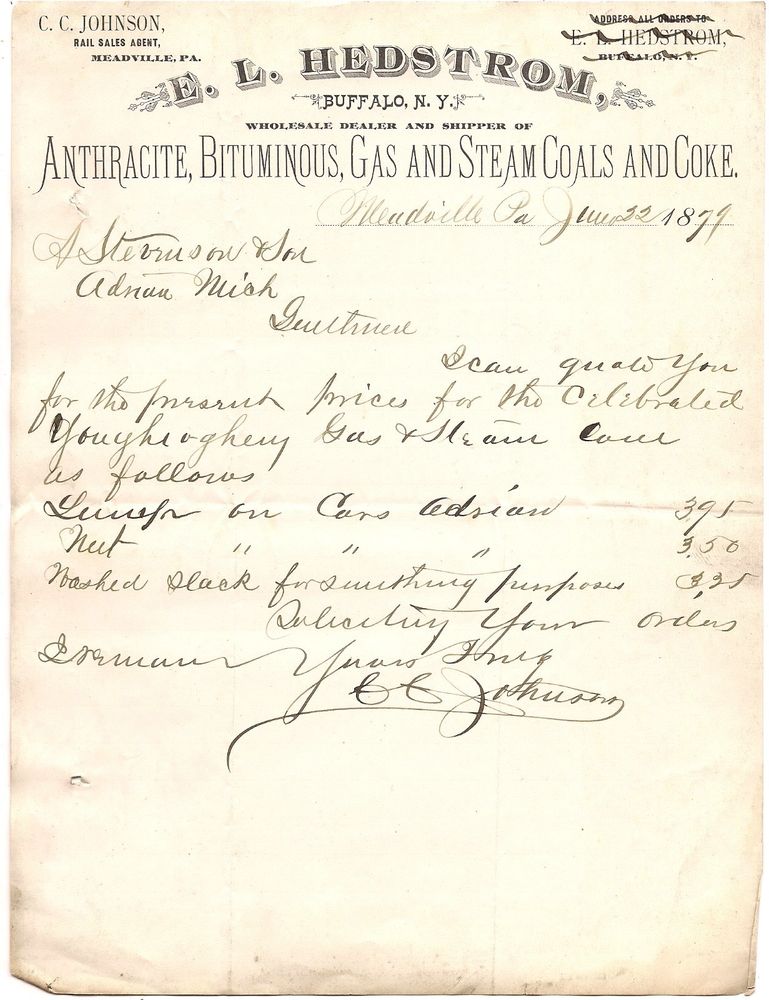 C. C. JOHNSON,
RAIL SALES AGENT,
MEADVILLE, PA.
ADDRESS ALL ORDERS TO
E. L. HEDSTROM,
BUFFALO, N. Y.
E. L. HEDSTROM,
BUFFALO, N. Y.
WHOLESALE DEALER AND SHIPPER OF
ANTHRACITE, BITUMINOUS, GAS AND STEAM COALS AND COKE.
Meadville Pa June 22 1879
A Stevenson & Son
Adrian Mich
Gentlmen
I can quote You
for the present prices for the Celebrated
Youghiogheny Gas & Steam Coal
as follows
Lump on Cars Adrian 3 95
Nut " " " 3.50
Washed Slack for smithing purposes 3.35
Soliciting Your orders
I remain Yours Truly
C C Johnson